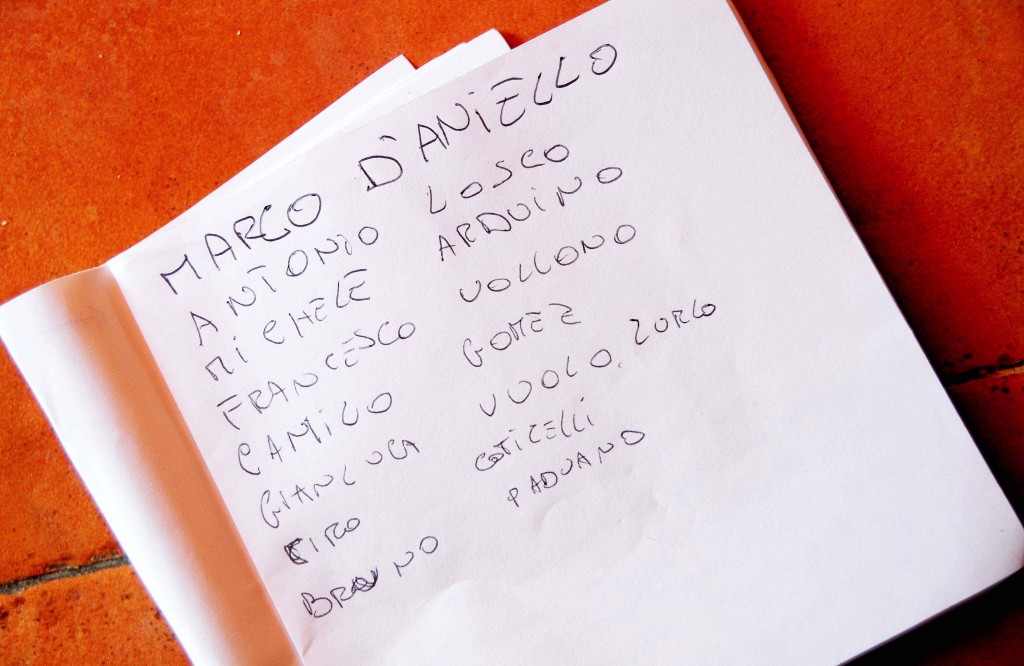 MARCO D'ANIELLO
ANTONIO LOSCO
MICHELE ARDUINO
FRANCESCO VOLLONO
CAMILO GOMEZ
GIANLUCA VUOLO, ZURLO
CIRO COTICELLI
BRUNO PADUANO